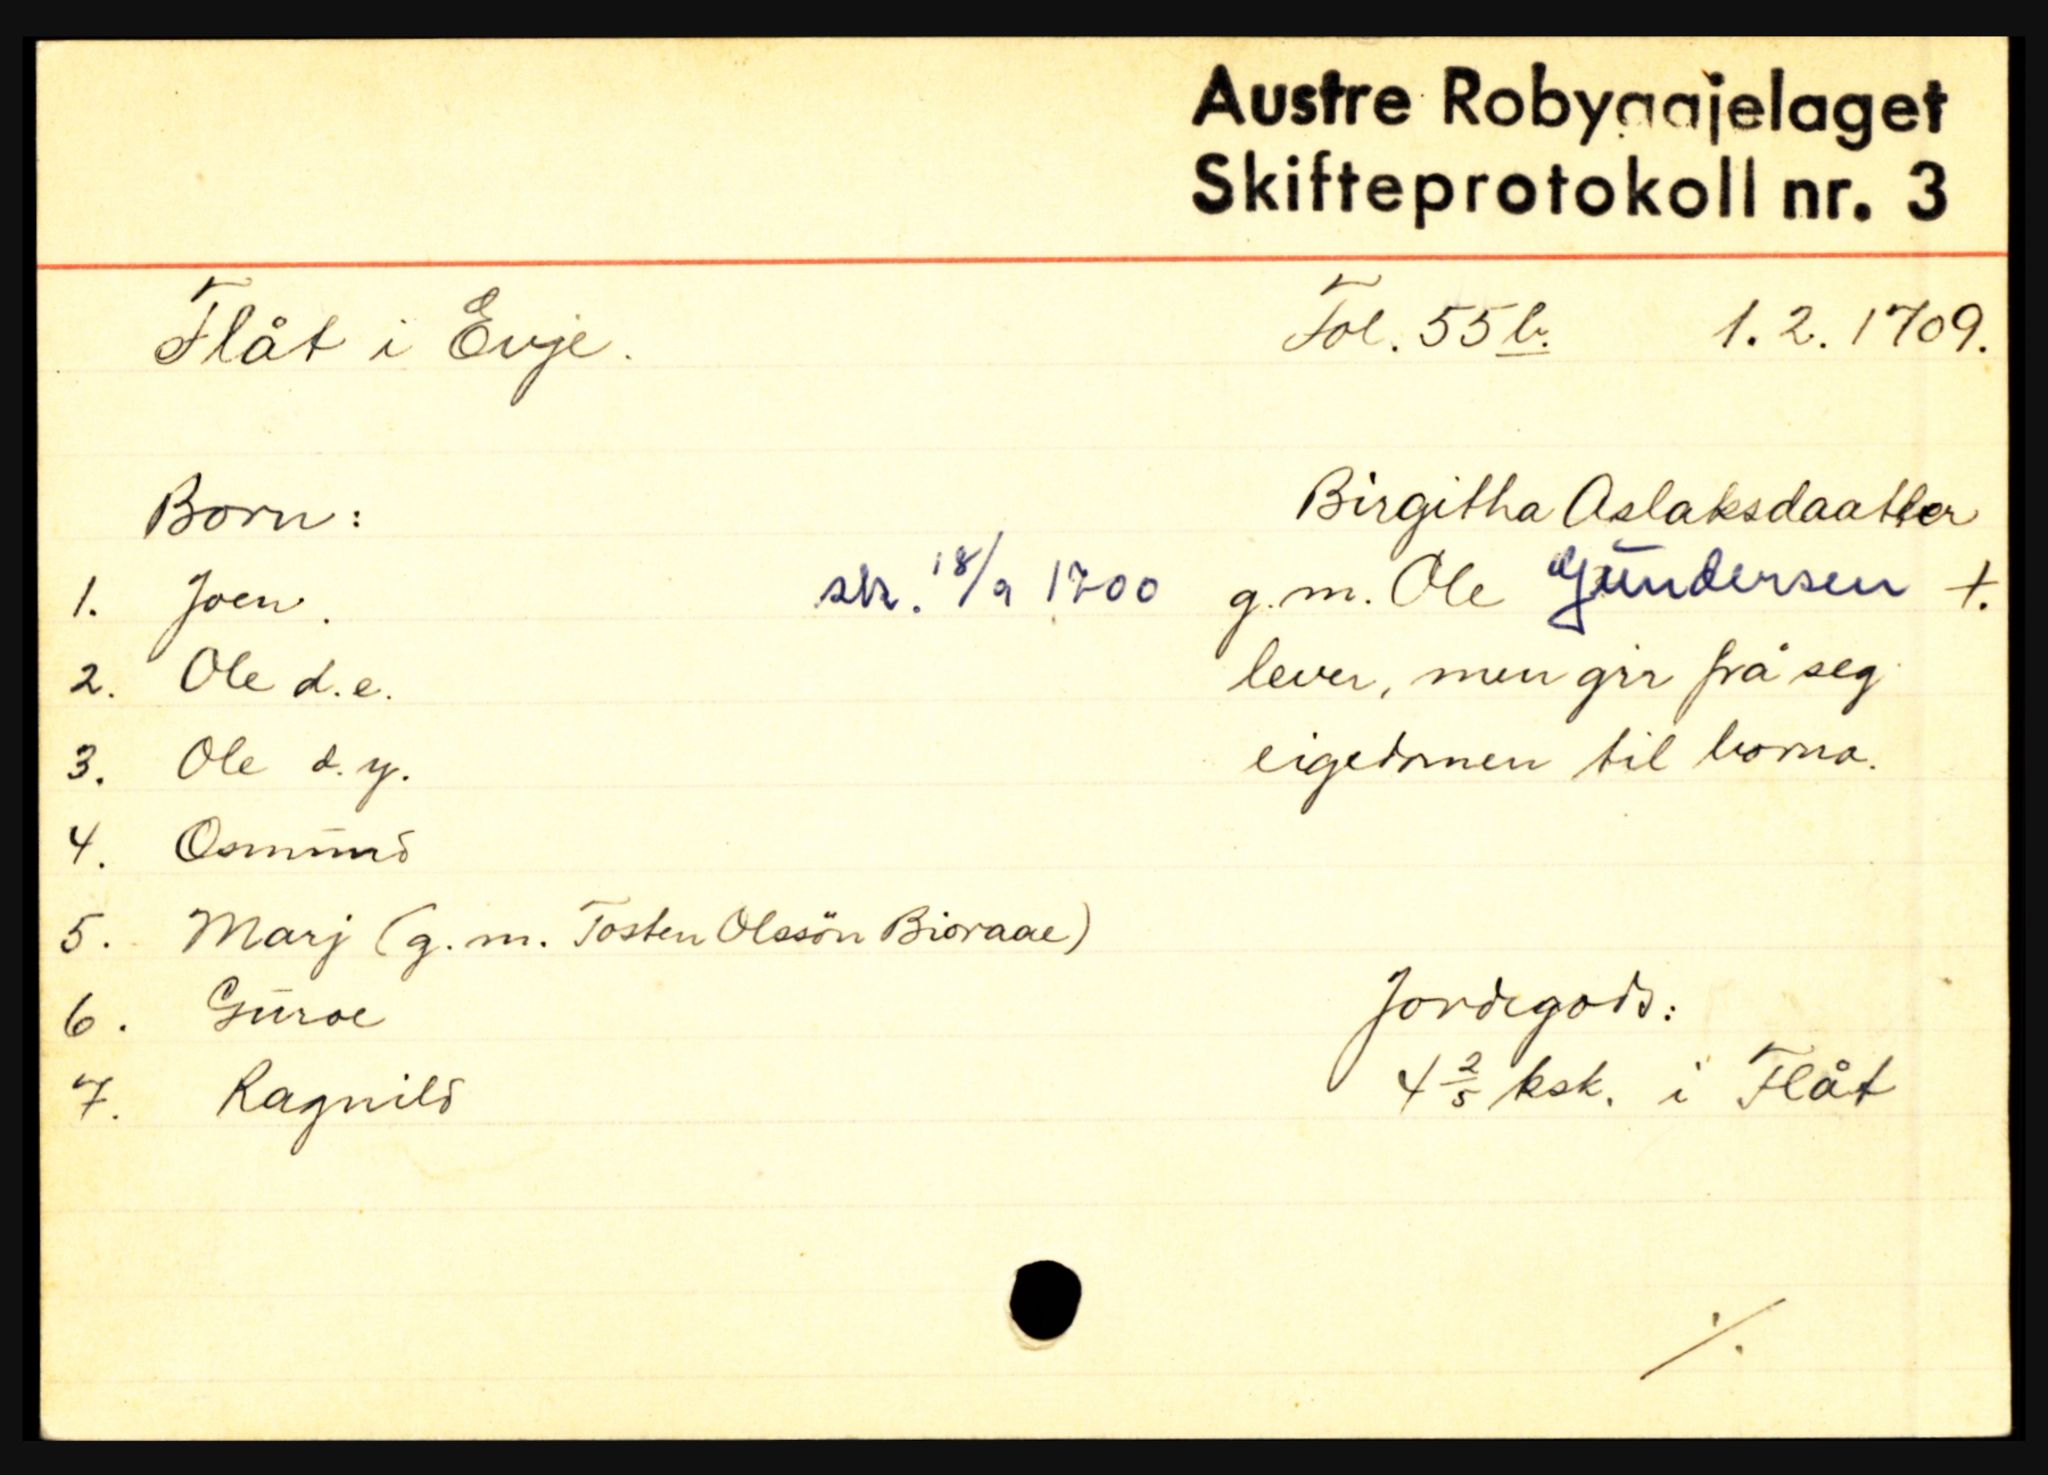 Austre Robyggjelaget
Skifteprotokoll nr. 3
Flåt i Evje. Fol. 55 b. 1. 2. 1709.
Born: Birgitha Aslaksdaatter
1. Joen. sk. 18/9 1700 g. m. Ole Gundersen †.
2. Ole d. e. lever, men gir frå seg
3. Ole d. y. eigedomen til borna.
4. Osmund
5. Marj (g. m. Tosten Olssön Bioraae)
6. Guroe Jordegods:
7. Ragnild 4 2/5 ksk. i Flåt
./.